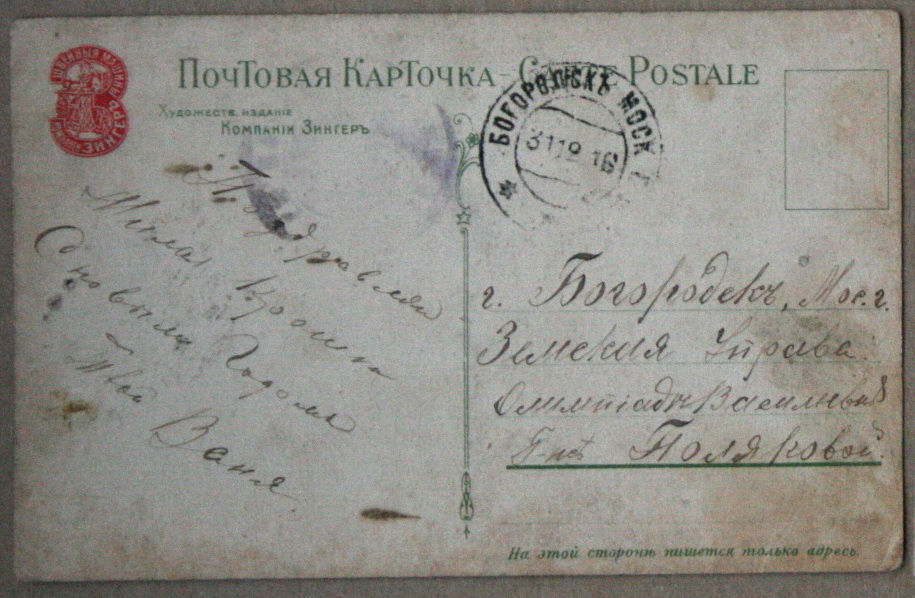 ШВЕЙНЫЯ МАШИНЫ
ЗИНГЕРЪ
ПОЧТОВАЯ КАРТОЧКА - CARTE POSTALE
ХУДОЖЕСТВ. ИЗДАНІЕ
КОМПАНІИ ЗИНГЕРЪ
БОГОРОДСКЪ МОСК
31 12 16
Поздравляю
Милая Крошка
С новымъ Годомъ
Твой Ваня
г. Богородскъ, Мос. г.
Земская Управа
Олимпіадѣ Васильевнѣ
Г-жѣ Поляковой.
На этой сторонѣ пишется только адресъ.